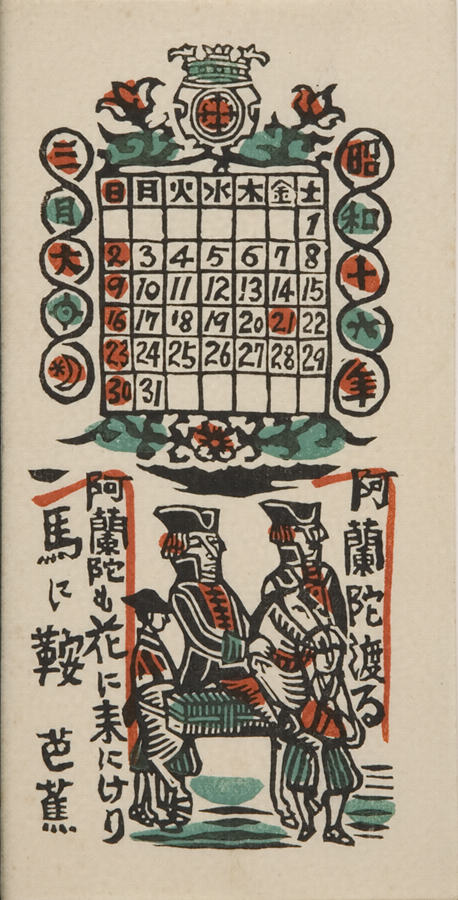 昭和十六年
三月大
日 月 火 水 木 金 土
1
2 3 4 5 6 7 8
9 10 11 12 13 14 15
16 17 18 19 20 21 22
23 24 25 26 27 28 29
30 31
阿蘭陀渡る
阿蘭陀も花に来にけり
馬に鞍 芭蕉